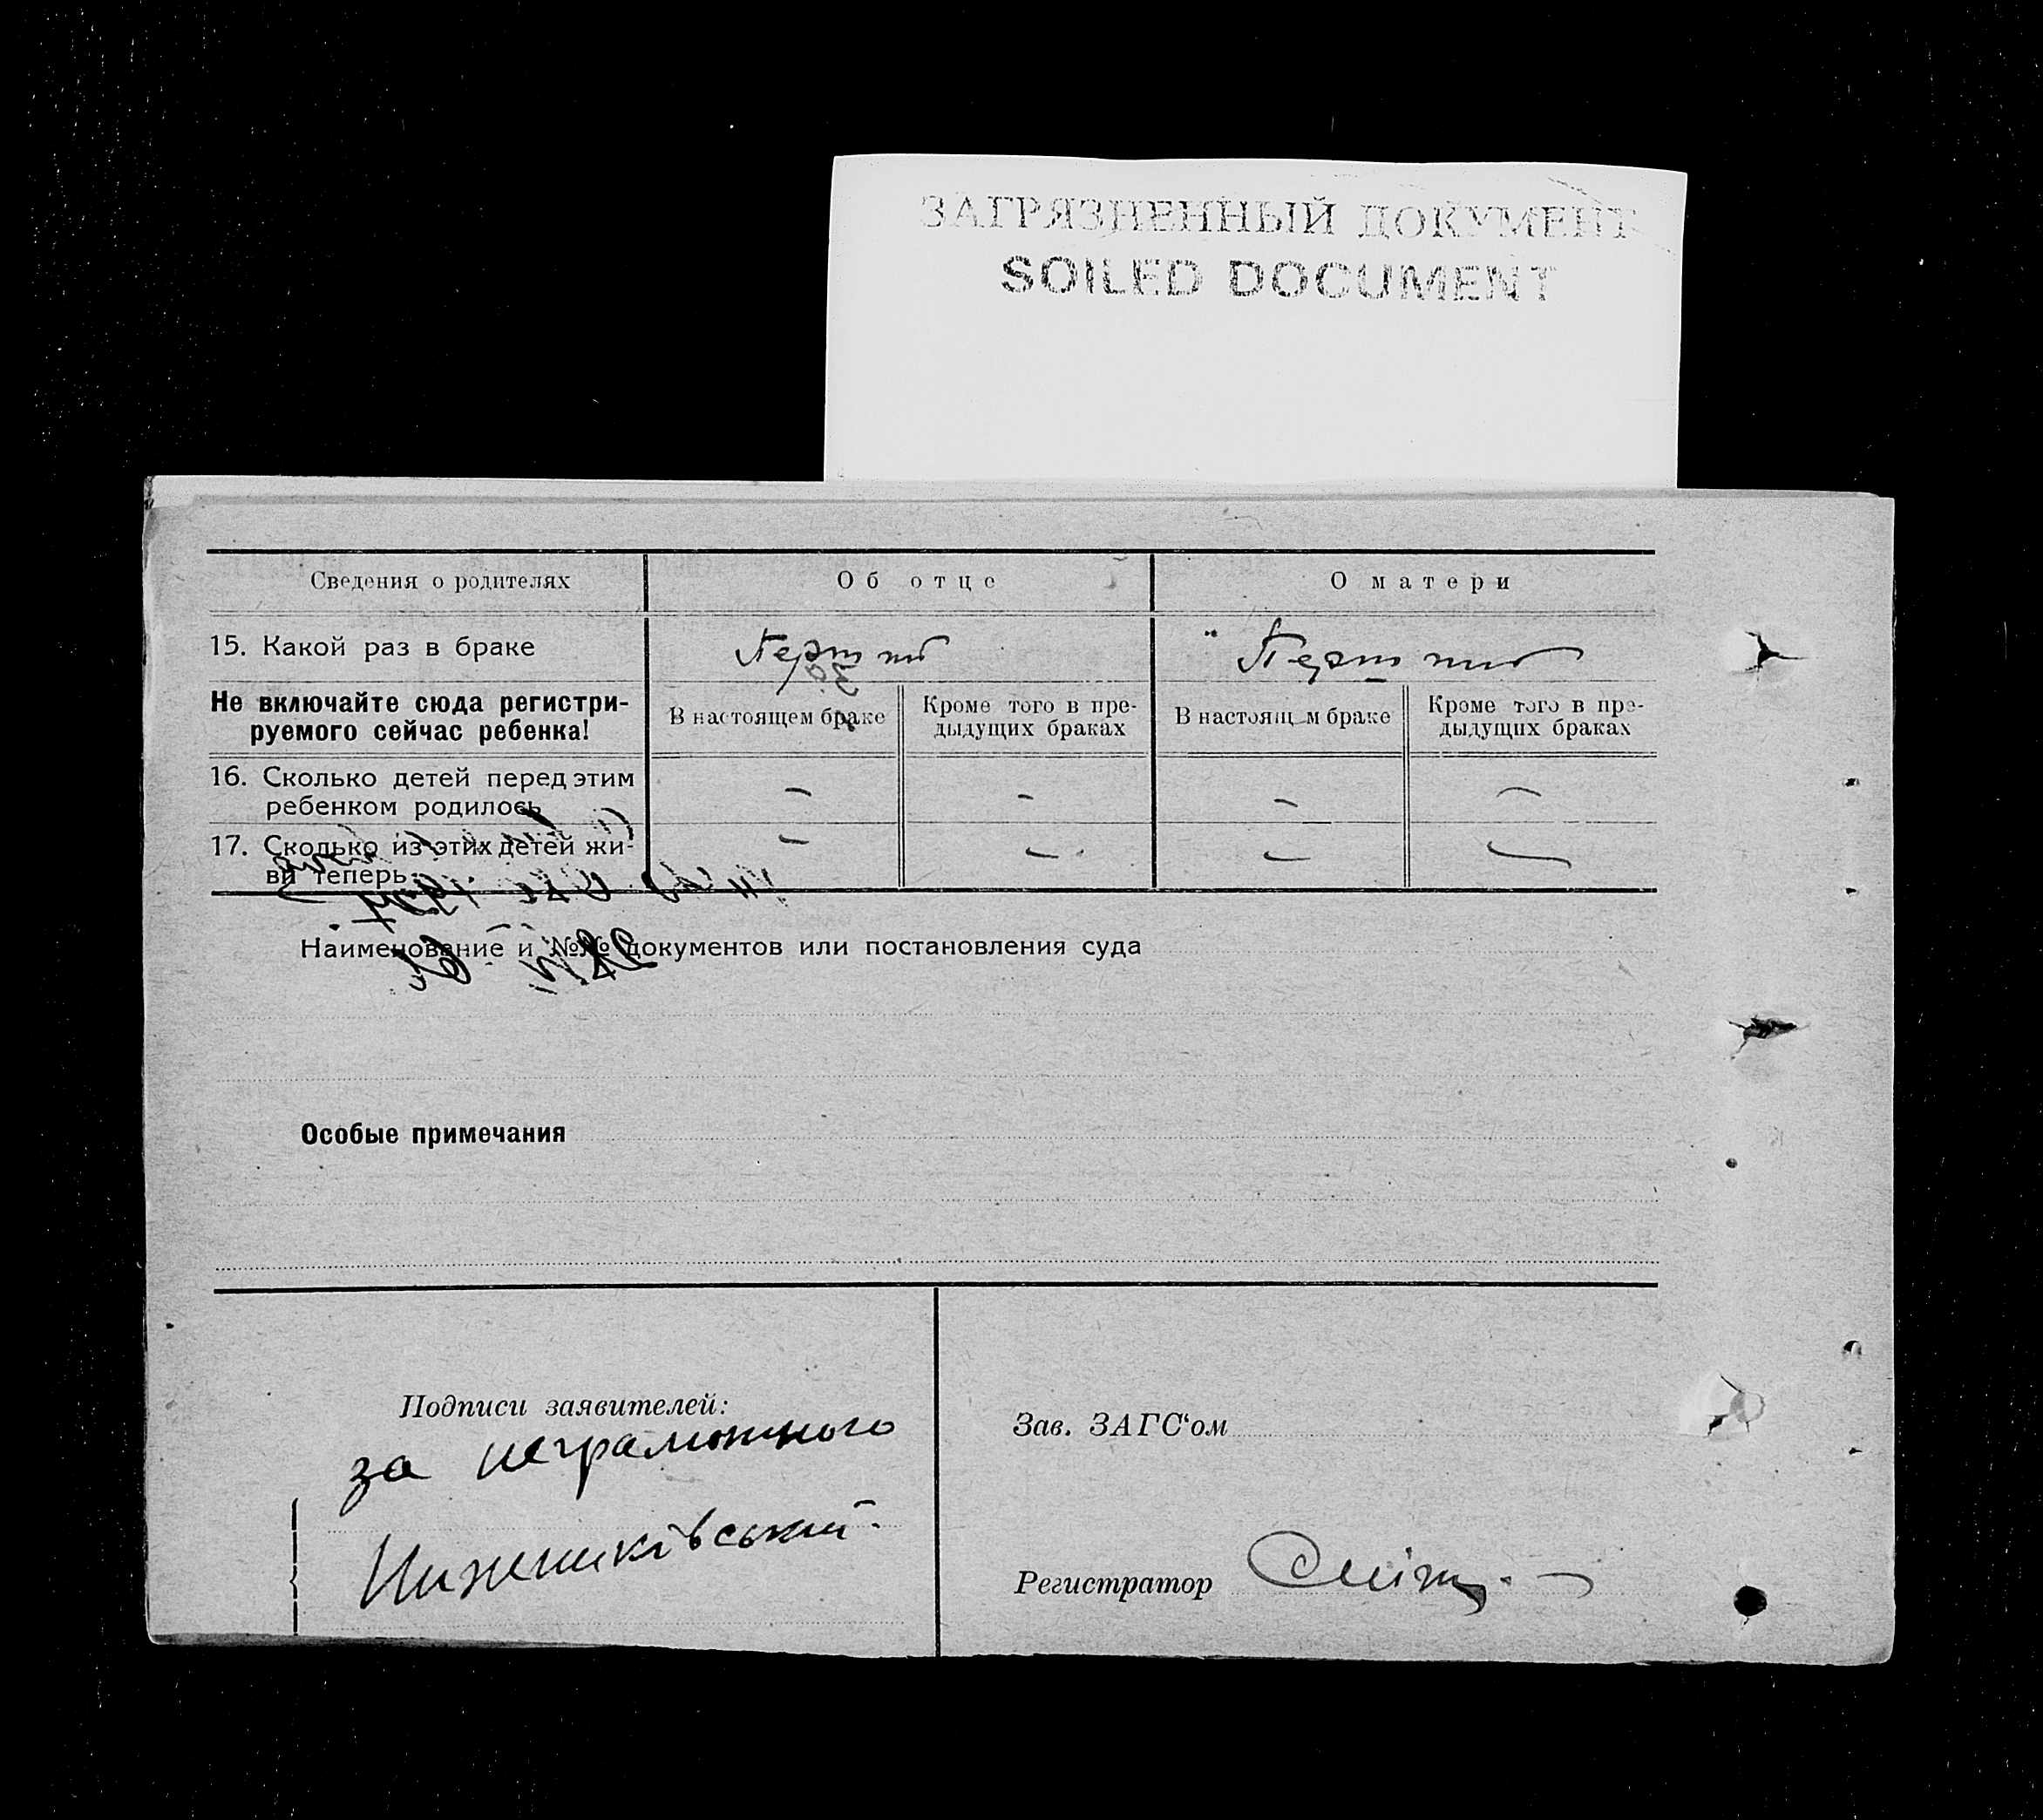 ЗАГРЯЗНЕННЫЙ ДОКУМЕНТ
SOILED DOCUMENT
Сведения о родителях Об отце О матери
15. Какой раз в браке
Не включайте сюда регистри-
руемого сейчас ребенка!
В настоящем браке Кроме того в пре-
дыдущих браках
В настоящ м браке Кроме того в пре-
дыдущих браках
16. Сколько детей перед этим
ребенком родилось
– – – –
17. Сколько из этих детей жи-
вы теперь
– – – –
Наименование и №№ документов или постановления суда
Особые примечания
Подписи заявителей:
за неграмотного
Зав. ЗАГС‘ом
Регистратор